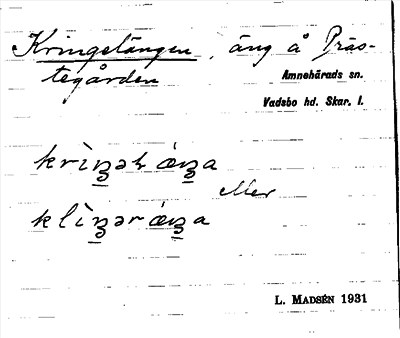 Kringelängen, äng å Präs-
tegården
Amnehärads sn.
Vadsbo hd. Skar. l.
krìŋ̲əl æ̀ŋ̲a
eller
klìŋ̲ər æ̀ŋ̲a
L. MADSÉN 1931